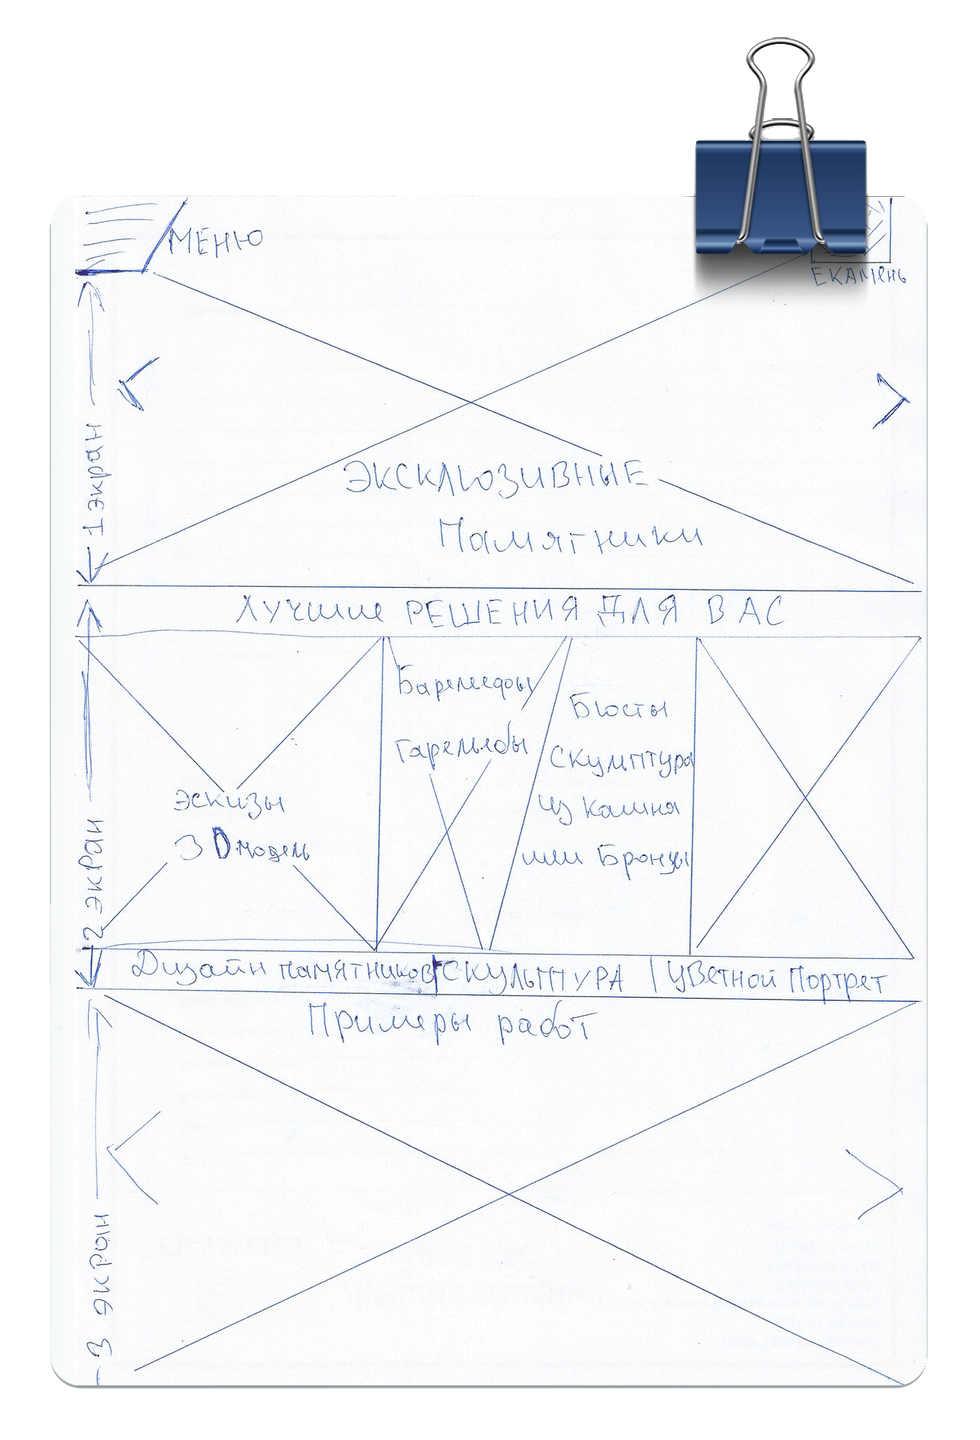 МЕНЮ
ЕКАМЕНЬ
1 экран
ЭКСКЛЮЗИВНЫЕ
Памятники
ЛУЧШИЕ РЕШЕНИЯ ДЛЯ ВАС
2 экран
Эскизы
3D модель
Барельефы
Горельефы
Бюсты
Скульптура
из камня
или Бронзы
Дизайн памятников | СКУЛЬПТУРА | ЦВЕТНОЙ Портрет
3 экран
Примеры работ